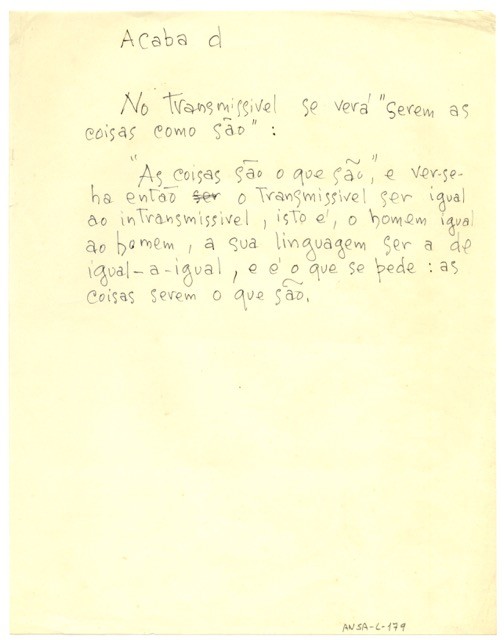 Acaba d
No Transmissivel se verá "serem as
coisas como são" :
"As coisas são o que são", e ver-se-
ha então ser o Transmissivel ser igual
ao intransmissivel, isto é, o homem igual
ao homem, a sua linguagem ser a de
igual-a-igual, e é o que se pede : as
coisas serem o que são.
ANSA-L-179